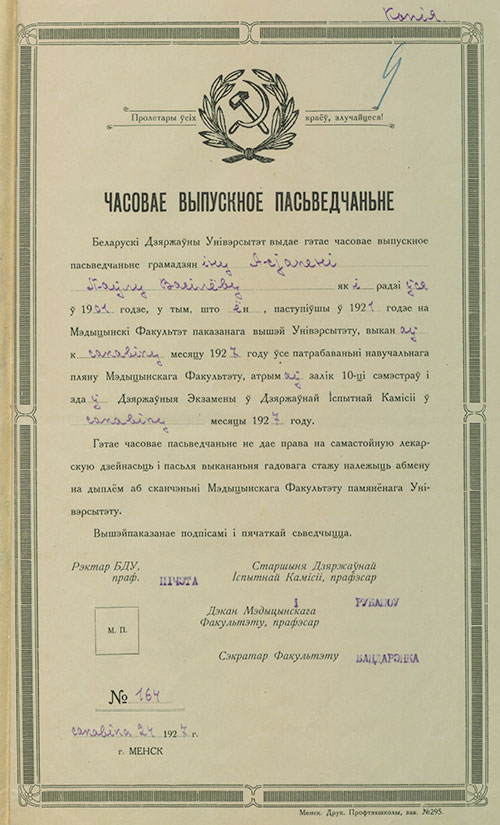 Копія.
Пролетары ўсіх краёў, злучайцеся!
ЧАСОВАЕ ВЫПУСКНОЕ ПАСЬВЕДЧАНЬНЕ
Беларускі Дзяржаўны Унівэрсытэт выдае гэтае часовае выпускное
пасьведчаньне грамадзян іну Асяпені
Паўлу Васілёву як і радзі ўся
ў 1901 годзе, у тым, што ён, паступіўшы ў 1921 годзе на
Мэдыцынскі Факультэт паказанага вышэй Унівэрсытэту, выкан аў
к сакавіку месяцу 1927 году ўсе патрабаваньні навучальнага
пляну Мэдыцынскага Факультэту, атрым аў залік 10-ці сэмэстраў і
зда ў Дзяржаўныя Экзамены ў Дзяржаўнай Іспытнай Камісіі ў
сакавіку месяцы 1927 году.
Гэтае часовае пасьведчаньне не дае права на самастойную лекар-
скую дзейнасьць і пасьля выкананьня гадовага стажу належыць абмену
на дыплём аб сканчэньні Мэдыцынскага Факультэту памянёнага Уні-
вэрсытэту.
Вышэйпаказанае подпісамі і пячаткай сьведчыцца.
Рэктар БДУ,
праф. ПІЧЭТА
Старшыня Дзяржаўнай
Іспытнай Камісіі, прафэсар
і
Дэкан Мэдыцынскага РУБАШОУ
Факультэту, прафэсар
М. П.
Сэкратар Факультэту БАНДАРЭНКА
№ 164
сакавіка 24 1927 г.
г. МЕНСК
Менск. Друк. Профтэхшколы, зак. №295.